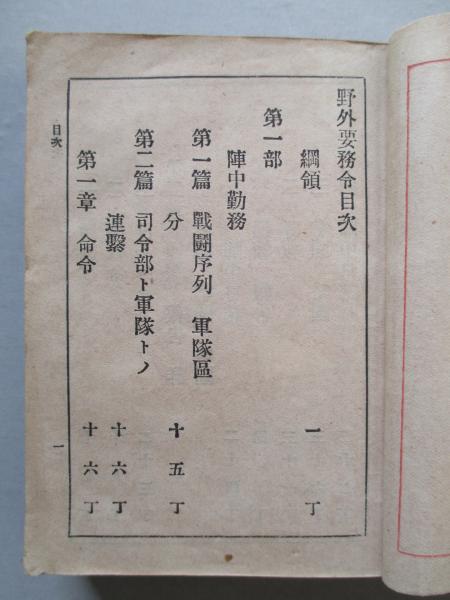 野外要務令目次
綱領 一丁
第一部
陣中勤務
第一篇 戰鬪序列 軍隊區
分 十五丁
第二篇 司令部ト軍隊トノ
連繫 十六丁
第一章 命令 十六丁
目次
一